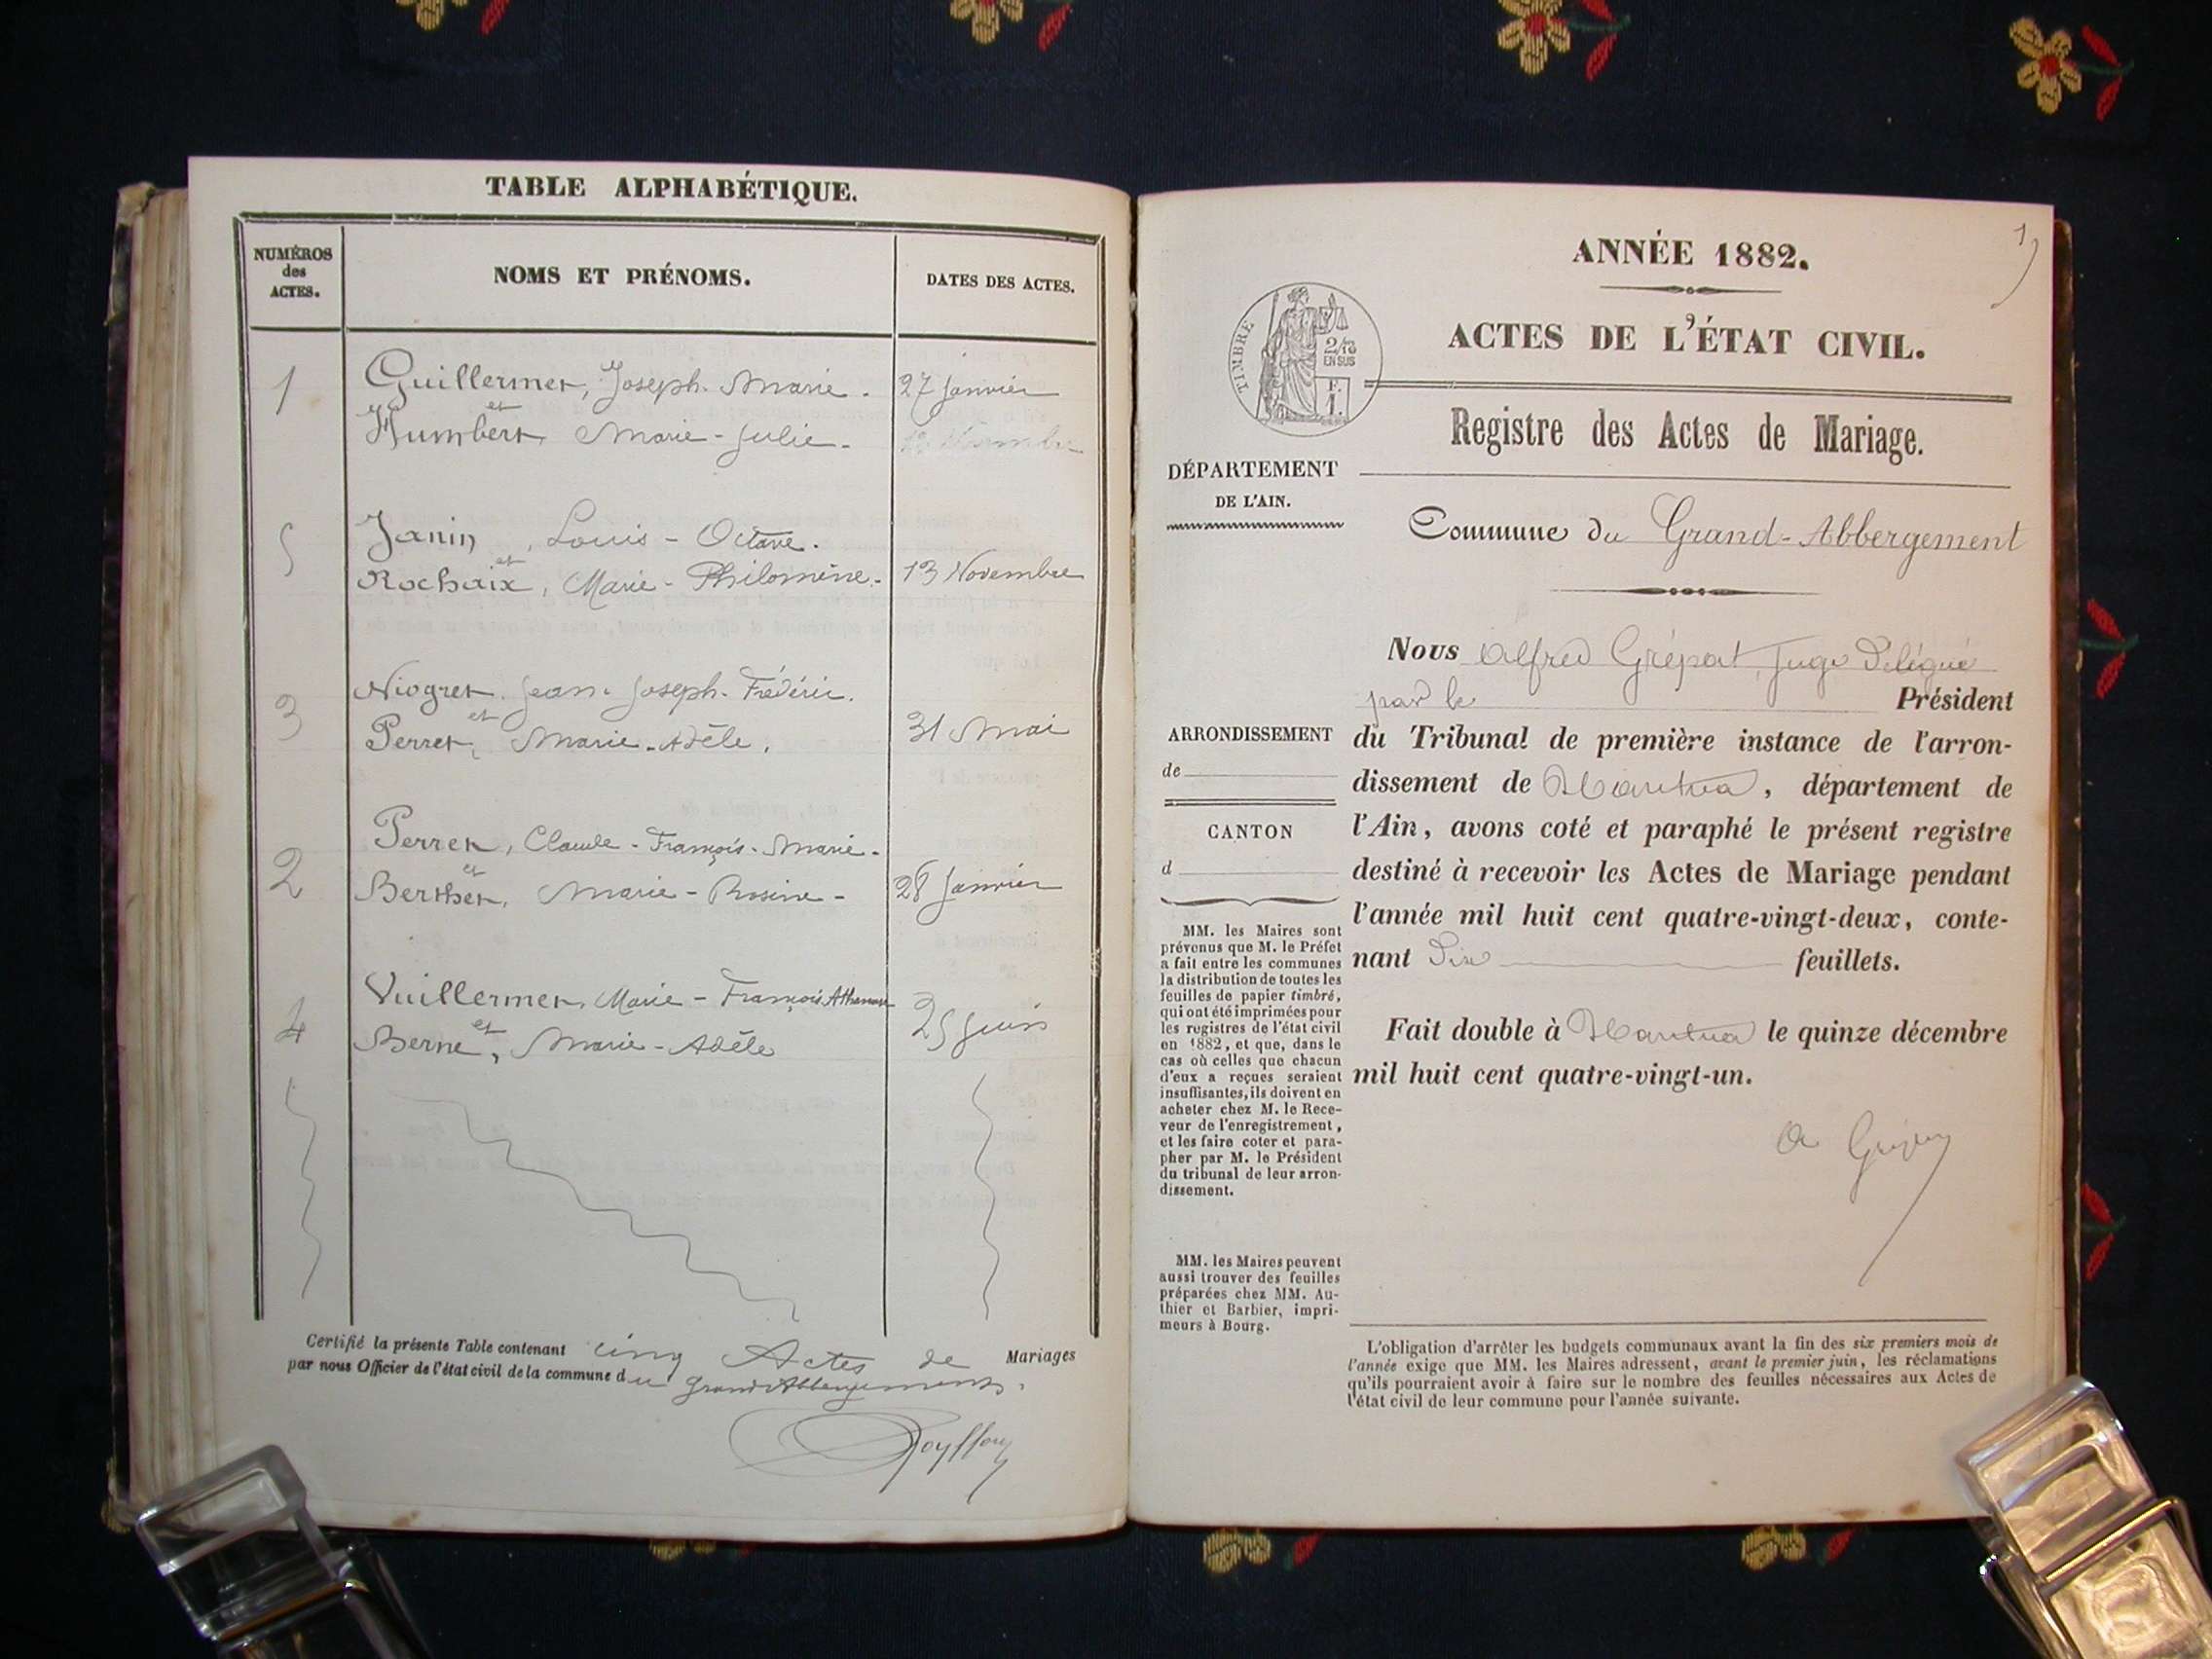 TABLE ALPHABÉTIQUE.
NUMÉROS
des
ACTES.
NOMS ET PRÉNOMS.
DATES DES ACTES.
1
Guillermet, Joseph-Marie.
27 Janvier
et
Humbert, Marie-Julie.
5
Janin, Louis-Octave.
et
Rochaix, Marie-Philomène.
13 Novembre
3
Niogret, Jean-Joseph-Frédéric.
et
Perret, Marie-Adèle.
31 Mai
2
Perret, Claude-François-Marie.
et
Berthet, Marie-Rosine-
28 Janvier
4
Vuillermet, Marie-François
et
Berne, Marie-Adèle
25 Juin
Certifié la présente Table contenant cinq Actes de Mariages
par nous Officier de l'état civil de la commune du Grand Abbergement.
1
ANNÉE 1882.
ACTES DE L'ÉTAT CIVIL.
TIMBRE
2/10
EN SUS
F.
1.
Registre des Actes de Mariage.
DÉPARTEMENT
DE L'AIN.
Commune du Grand-Abbergement
Nous Alfred Grépat, Juge Délégué
par le Président
ARRONDISSEMENT
de
CANTON
d
du Tribunal de première instance de l'arron-
dissement de Nantua, département de
l'Ain, avons coté et paraphé le présent registre
destiné à recevoir les Actes de Mariage pendant
l'année mil huit cent quatre-vingt-deux, conte-
nant feuillets.
Fait double à Nantua le quinze décembre
mil huit cent quatre-vingt-un.
MM. les Maires sont
prévenus que M. le Préfet
a fait entre les communes
la distribution de toutes les
feuilles de papier timbré,
qui ont été imprimées pour
les registres de l'état civil
en 1882, et que, dans le
cas où celles que chacun
d'eux a reçues seraient
insuffisantes, ils doivent en
acheter chez M. le Rece-
veur de l'enregistrement,
et les faire coter et para-
pher par M. le Président
du tribunal de leur arron-
dissement.
MM. les Maires peuvent
aussi trouver des feuilles
préparées chez MM. Au-
thier et Barbier, impri-
meurs à Bourg.
L'obligation d'arrêter les budgets communaux avant la fin des six premiers mois de
l'année exige que MM. les Maires adressent, avant le premier juin, les réclamations
qu'ils pourraient avoir à faire sur le nombre des feuilles nécessaires aux Actes de
l'état civil de leur commune pour l'année suivante.